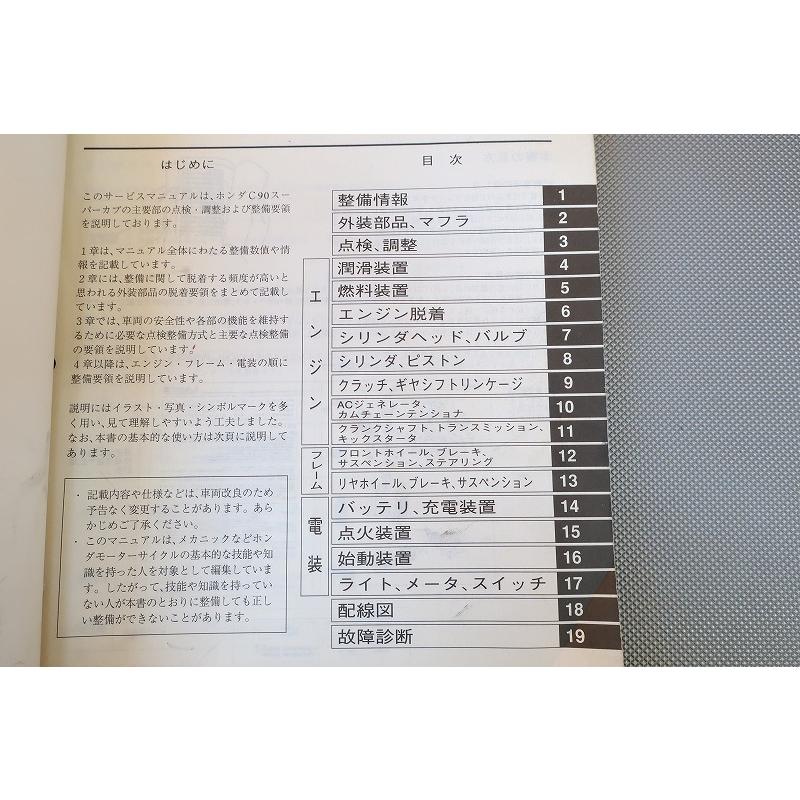 はじめに
このサービスマニュアルは、ホンダC90スー
パーカブの主要部の点検・調整および整備要領
を説明しております。
1章は、マニュアル全体にわたる整備数値や情
報を記載しています。
2章には、整備に関して脱着する頻度が高いと
思われる外装部品の脱着要領をまとめて記載し
ています。
3章では、車両の安全性や各部の機能を維持す
るために必要な点検整備方式と主要な点検整備
の要領を説明しています。
4章以降は、エンジン・フレーム・電装の順に
整備要領を説明しています。
説明にはイラスト・写真・シンボルマークを多
く用い、見て理解しやすいよう工夫しました。
なお、本書の基本的な使い方は次頁に説明して
あります。
・ 記載内容や仕様などは、車両改良のため
予告なく変更することがあります。あら
かじめご了承ください。
・ このマニュアルは、メカニックなどホン
ダモーターサイクルの基本的な技能や知
識を持った人を対象として編集していま
す。したがって、技能や知識を持ってい
ない人が本書のとおりに整備しても正し
い整備ができないことがあります。
目 次
整備情報 1
外装部品、マフラ 2
点検、調整 3
エンジン
潤滑装置 4
燃料装置 5
エンジン脱着 6
シリンダヘッド、バルブ 7
シリンダ、ピストン 8
クラッチ、ギヤシフトリンケージ 9
ACジェネレータ、
カムチェーンテンショナ 10
クランクシャフト、トランスミッション、
キックスタータ 11
フレーム
フロントホイール、ブレーキ、
サスペンション、ステアリング 12
リヤホイール、ブレーキ、サスペンション 13
電装
バッテリ、充電装置 14
点火装置 15
始動装置 16
ライト、メータ、スイッチ 17
配線図 18
故障診断 19